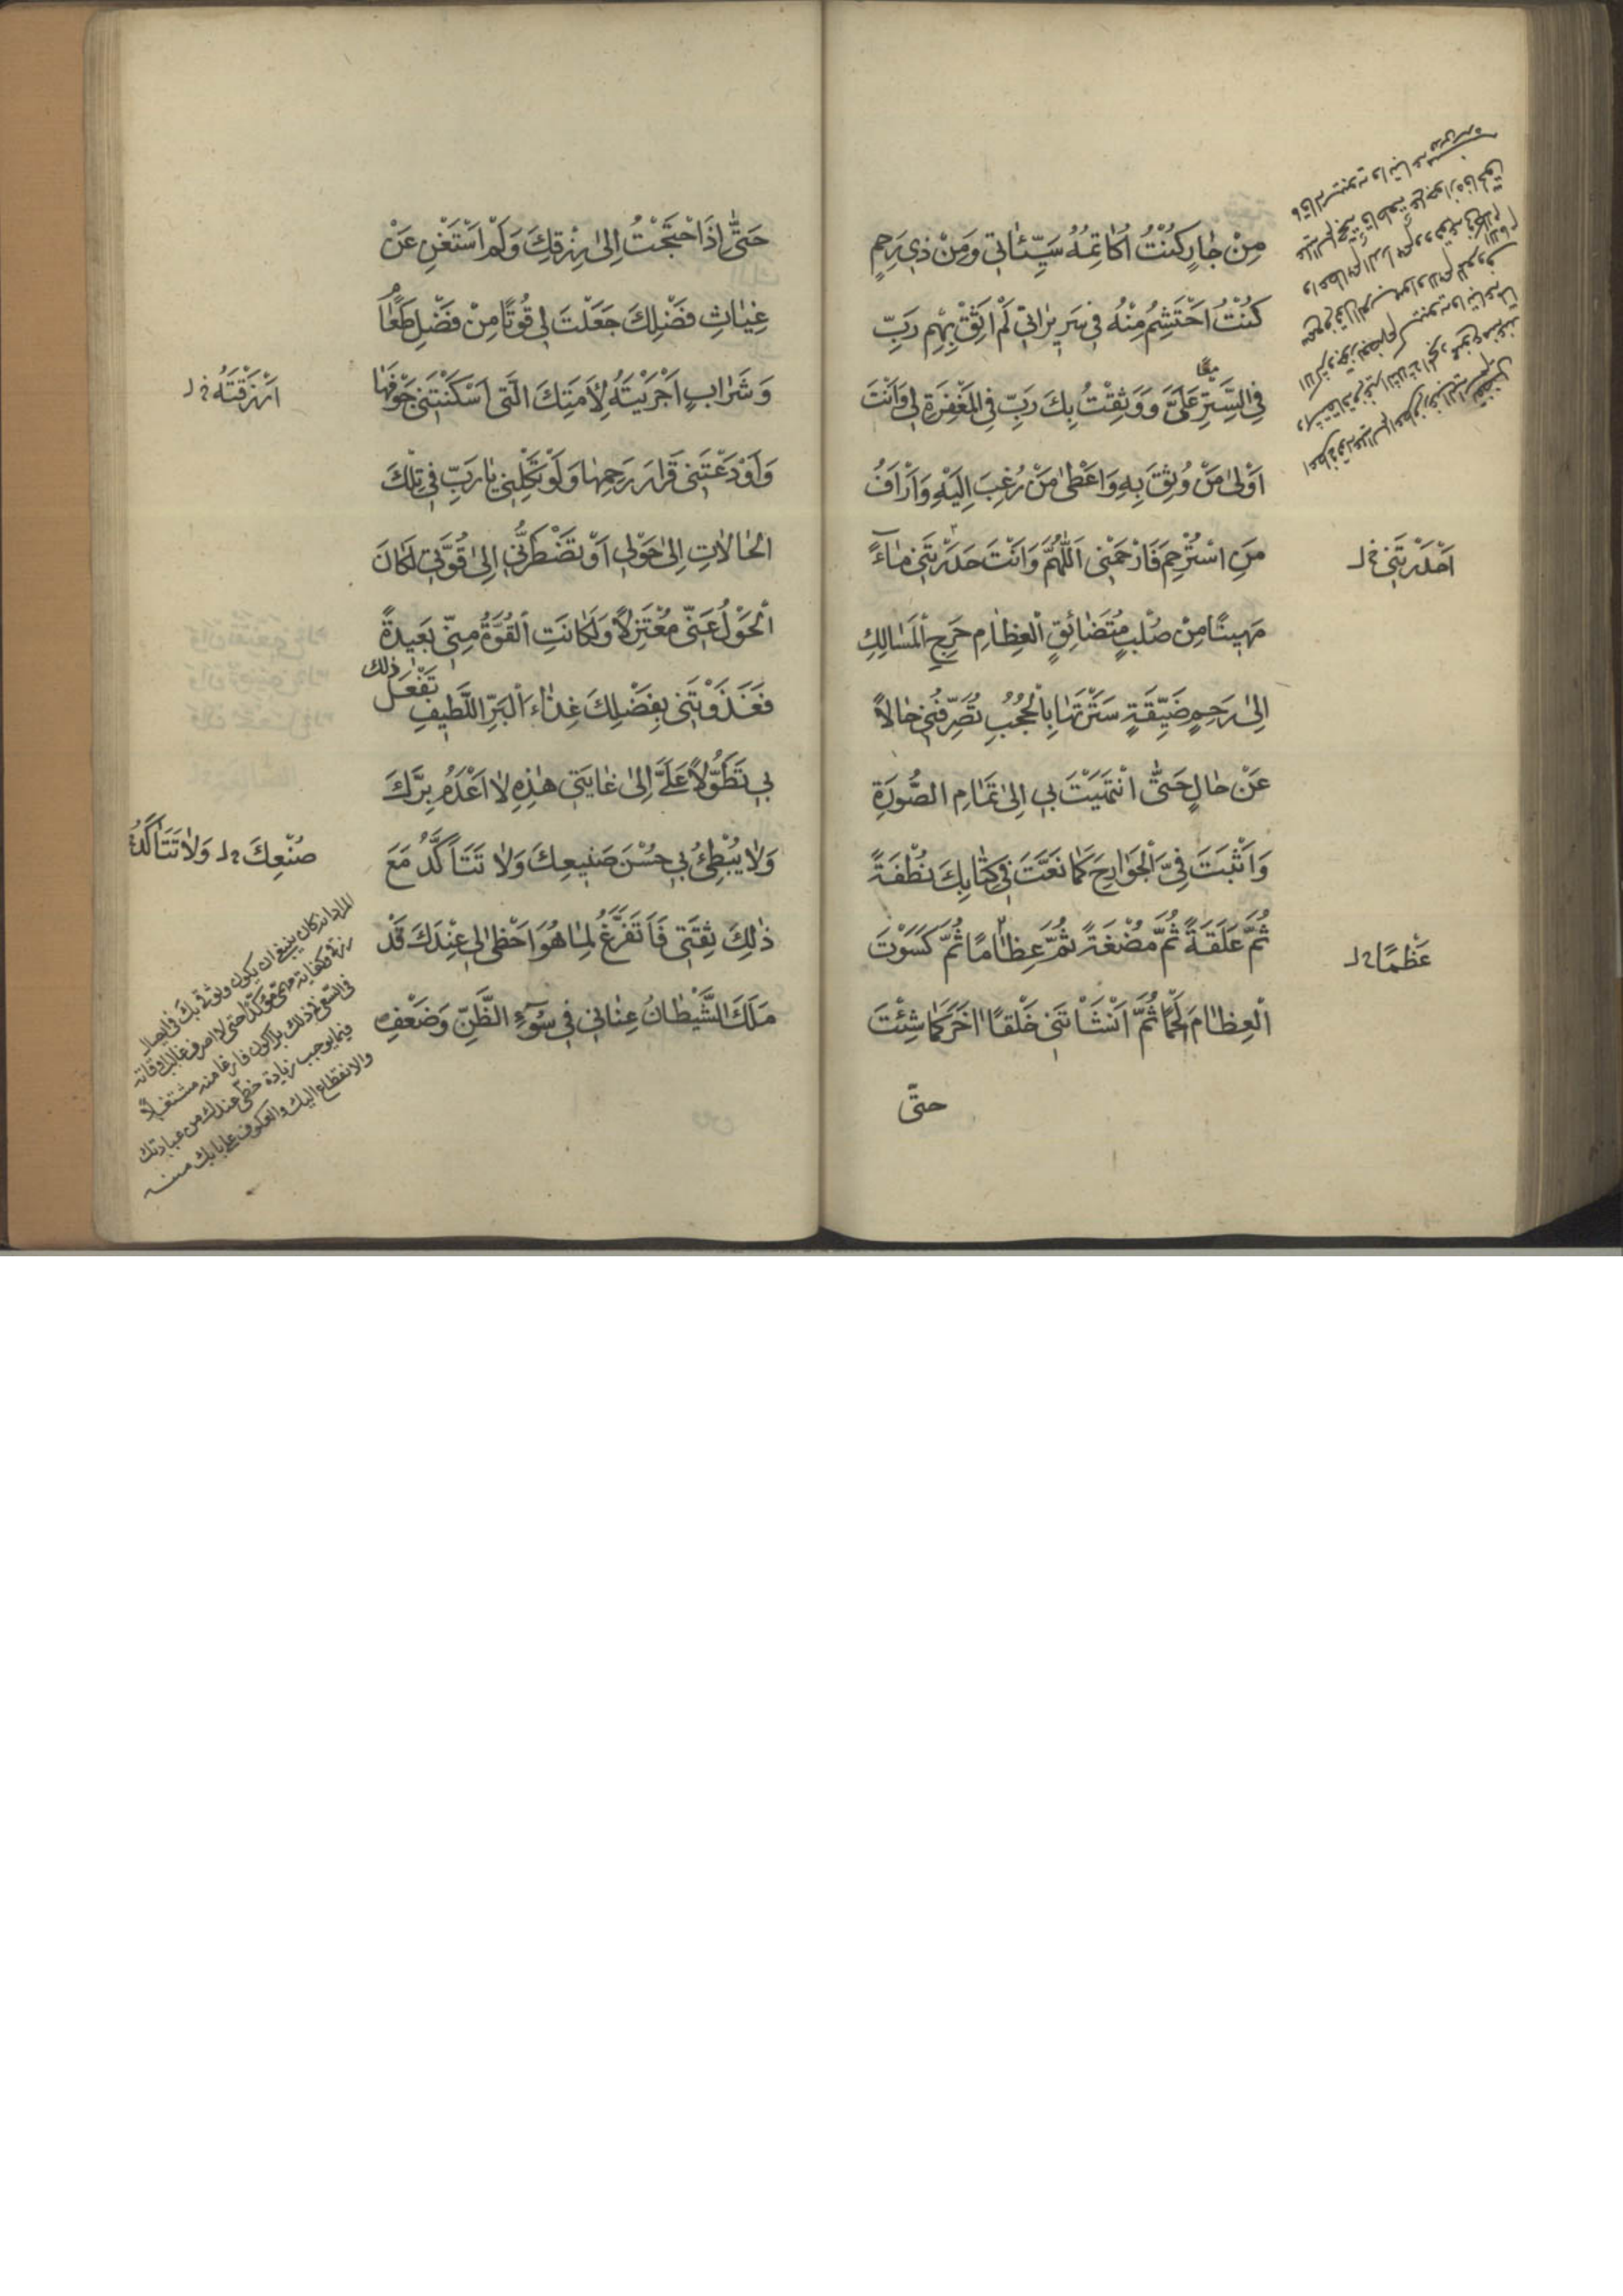 مِنْ جٰارٍ كُنْتُ اُكٰاتِمُهُ سَيِّئٰاتي وَمِنْ ذي رَحِمٍ
كُنْتُ اَحْتَشِمُ مِنْهُ في سَريرٰاتي لَمْ اَثِقْ بِهِمْ رَبِّ
فِي السِّتْرِ عَلَيَّ وَوَثِقْتُ بِكَ رَبِّ فِي الْمَغْفِرَةِ لي وَاَنْتَ
معًا
اَوْلىٰ مَنْ وُثِقَ بِهِ وَاَعْطىٰ مَنْ رُغِبَ اِلَيْهِ وَاَرْاَفُ
مَنِ اسْتُرْحِمَ فَارْحَمْني اَللّٰهُمَّ وَاَنْتَ حَدَرْتَني مٰاءً
اَحْدَرْتَني خ ل
مَهينًا مِنْ صُلْبٍ مُتَضٰائِقِ الْعِظٰامِ حَرِجِ الْمَسٰالِكِ
اِلىٰ رَحِمٍ ضَيِّقَةٍ سَتَرْتَهٰا بِالْحُجُبِ تُصَرِّفُني حٰالاً
عَنْ حٰالٍ حَتّٰى انْتَهَيْتَ بي اِلىٰ تَمٰامِ الصُّورَةِ
وَاَثْبَتَّ فِيَّ الْجَوٰارِحَ كَمٰا نَعَتَّ في كِتٰابِكَ نُطْفَةً
ثُمَّ عَلَقَةً ثُمَّ مُضْغَةً ثُمَّ عِظٰامًا ثُمَّ كَسَوْتَ
عَظْمًا خ ل
الْعِظٰامَ لَحْمًا ثُمَّ اَنْشَاْتَني خَلْقًا اٰخَرَ كَمٰا شِئْتَ
حتّى
حَتّٰى اِذَا احْتَجْتُ اِلىٰ رِزْقِكَ وَلَمْ اَسْتَغْنِ عَنْ
غِيٰاثِ فَضْلِكَ جَعَلْتَ لي قُوتًا مِنْ فَضْلِ طَعٰامٍ
وَشَرٰابٍ اَجْرَيْتَهُ لِاَمَتِكَ الَّتي اَسْكَنْتَني جَوْفَهٰا
اَرْزَقْتَهُ خ ل
وَاَوْدَعْتَني قَرٰارَ رَحِمِهٰا وَلَوْ تَكِلْني يٰا رَبِّ في تِلْكَ
الْحٰالاٰتِ اِلىٰ حَوْلي اَوْ تَضْطَرُّني اِلىٰ قُوَّتي لَكٰانَ
الْحَوْلُ عَنّي مُعْتَزِلاً وَلَكٰانَتِ الْقُوَّةُ مِنّي بَعيدَةً
فَغَذَوْتَني بِفَضْلِكَ غِذٰاءَ الْبَرِّ اللَّطيفِ تَفْعَلُ ذٰلِكَ
بي تَطَوُّلاً عَلَيَّ اِلىٰ غٰايَتي هٰذِهِ لاٰ اَعْدَمُ بِرَّكَ
وَلاٰ يُبْطِئُ بي حُسْنَ صَنيعِكَ وَلاٰ تَتَاَكَّدُ مَعَ
صُنْعِكَ خ ل وَلاٰ تَتَاَكَّدُ
ذٰلِكَ ثِقَتي فَاَتَفَرَّغَ لِمٰا هُوَ اَحْظىٰ لي عِنْدَكَ قَدْ
مَلَكَ الشَّيْطٰانُ عِنٰاني في سُوۤءِ الظَّنِّ وَضَعْفِ
المراد انه كان ينبغي ان يكون وثوقي بك في ايصال
رزقي وكفايته حتمي مؤكدًا حتى لا اصرف غالب اوقاته
في السعي في ذلك بل اكون فارغا منه مشتغلاً
فيما يوجب زيادة حظي عندك من عبادتك
والانقطاع اليك والعكوف على بابك منه